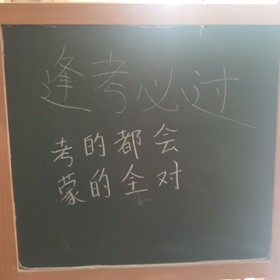 逢考必过
考的都会
蒙的全对